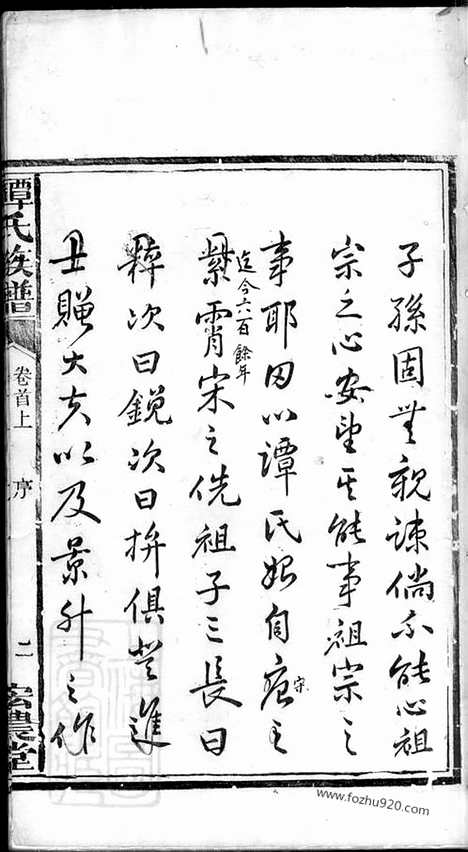 子孫固無親疎倘不能心祖
宗之心安望其能事祖宗之
事耶因以譚氏始自唐宋之
迄今六百餘年
紫霄宋之侁祖子三長曰
粹次曰銳次曰拚俱登進
丑賜大夫以及景升之作
譚氏族譜
卷首上
序
二
宏農堂
www.fozhu920.com